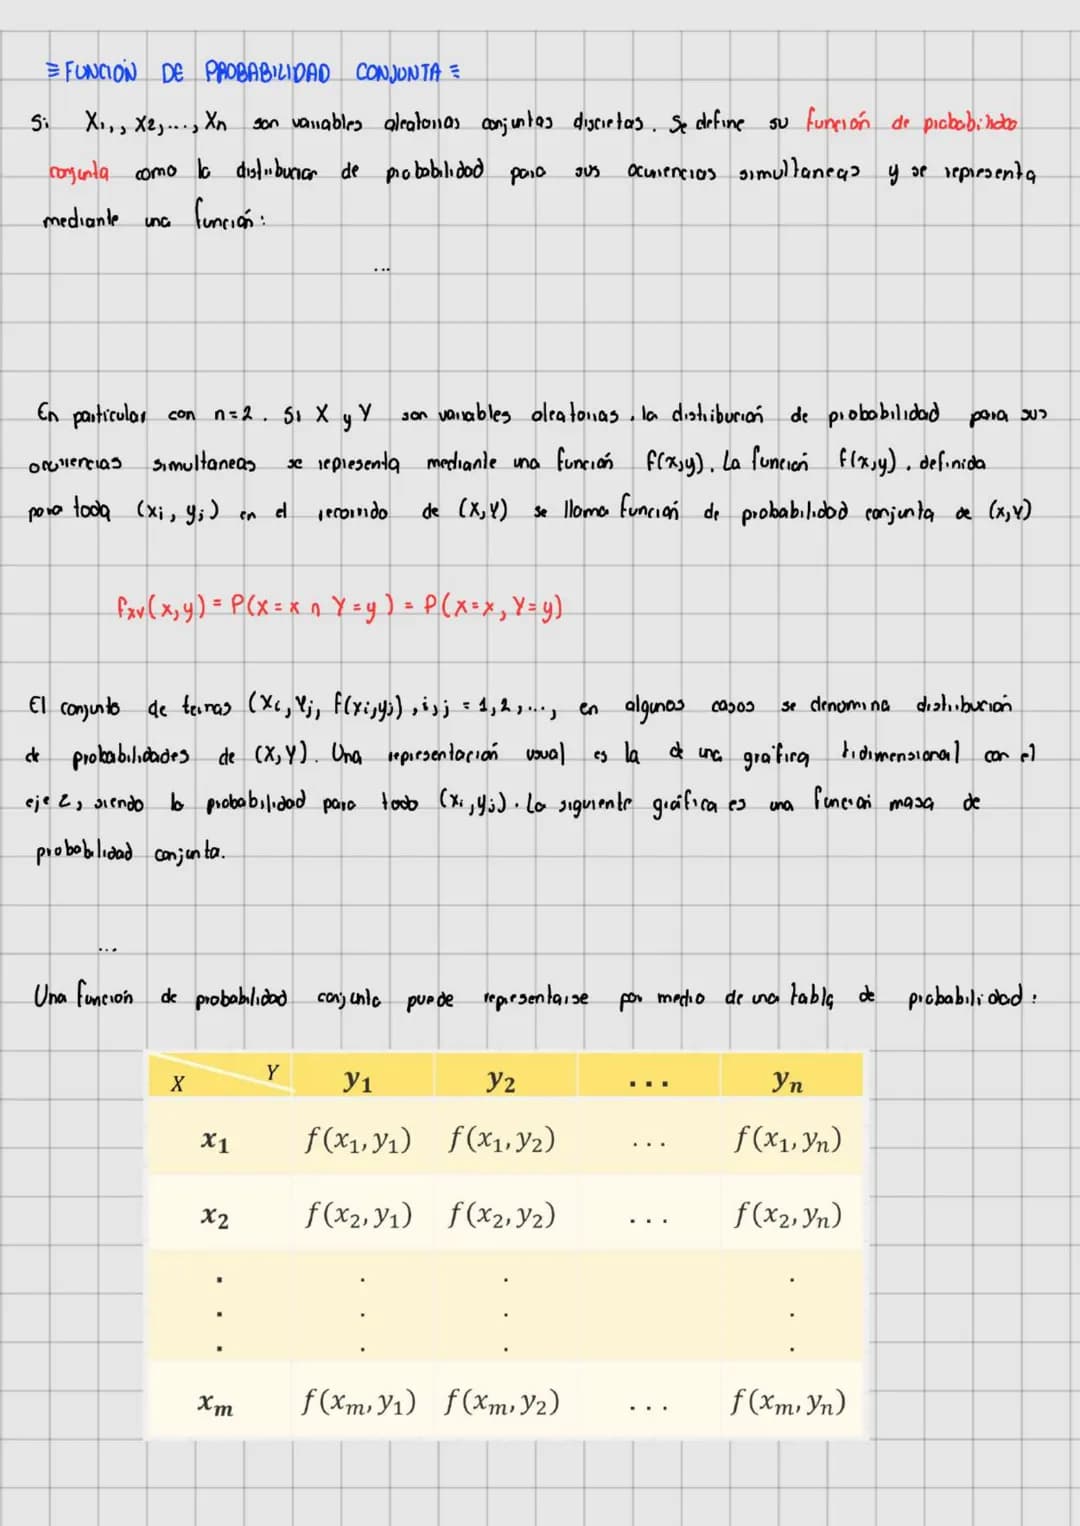 ≡ FUNCIÓN DE PROBABILIDAD CONJUNTA ≡
Si X₁,, X₂,..., Xn son variables aleatorias conjuntas discretas. Se define su función de probabilidad
conjunta como la distribución de probabilidad para sus ocurrencias simultaneas y se representa
mediante una función:
...
En particular con n=2. Si X y Y son variables aleatorias, la distribución de probabilidad para sus
ocurrencias simultaneas se representa mediante una función f(x,y). La función f(x,y), definida
para toda (xi, yj) en el recorrido de (X,Y) se llama función de probabilidad conjunta de (X,Y)
fxy(x,y) = P(X = x ∩ Y = y) = P(X=x, Y=y)
El conjunto de ternas (Xi, Yj, f(xi,yj), i,j = 1,2,..., en algunos casos se denomina distribución
de probabilidades de (X,Y). Una representación usual es la de una gráfica tidimensional con el
eje Z, siendo la probabilidad para todo (xi,yj). La siguiente gráfica es una función masa de
probabilidad conjunta.
...
Una función de probabilidad conjunta puede representarse por medio de una tabla de probabilidad:
X Y y₁ y₂ ... yn
x₁ f(x₁,y₁) f(x₁,y₂) ... f(x₁,yn)
x₂ f(x₂,y₁) f(x₂,y₂) ... f(x₂,yn)
. . . .
. . . .
. . . .
xm f(xm,y₁) f(xm,y₂) ... f(xm,yn)